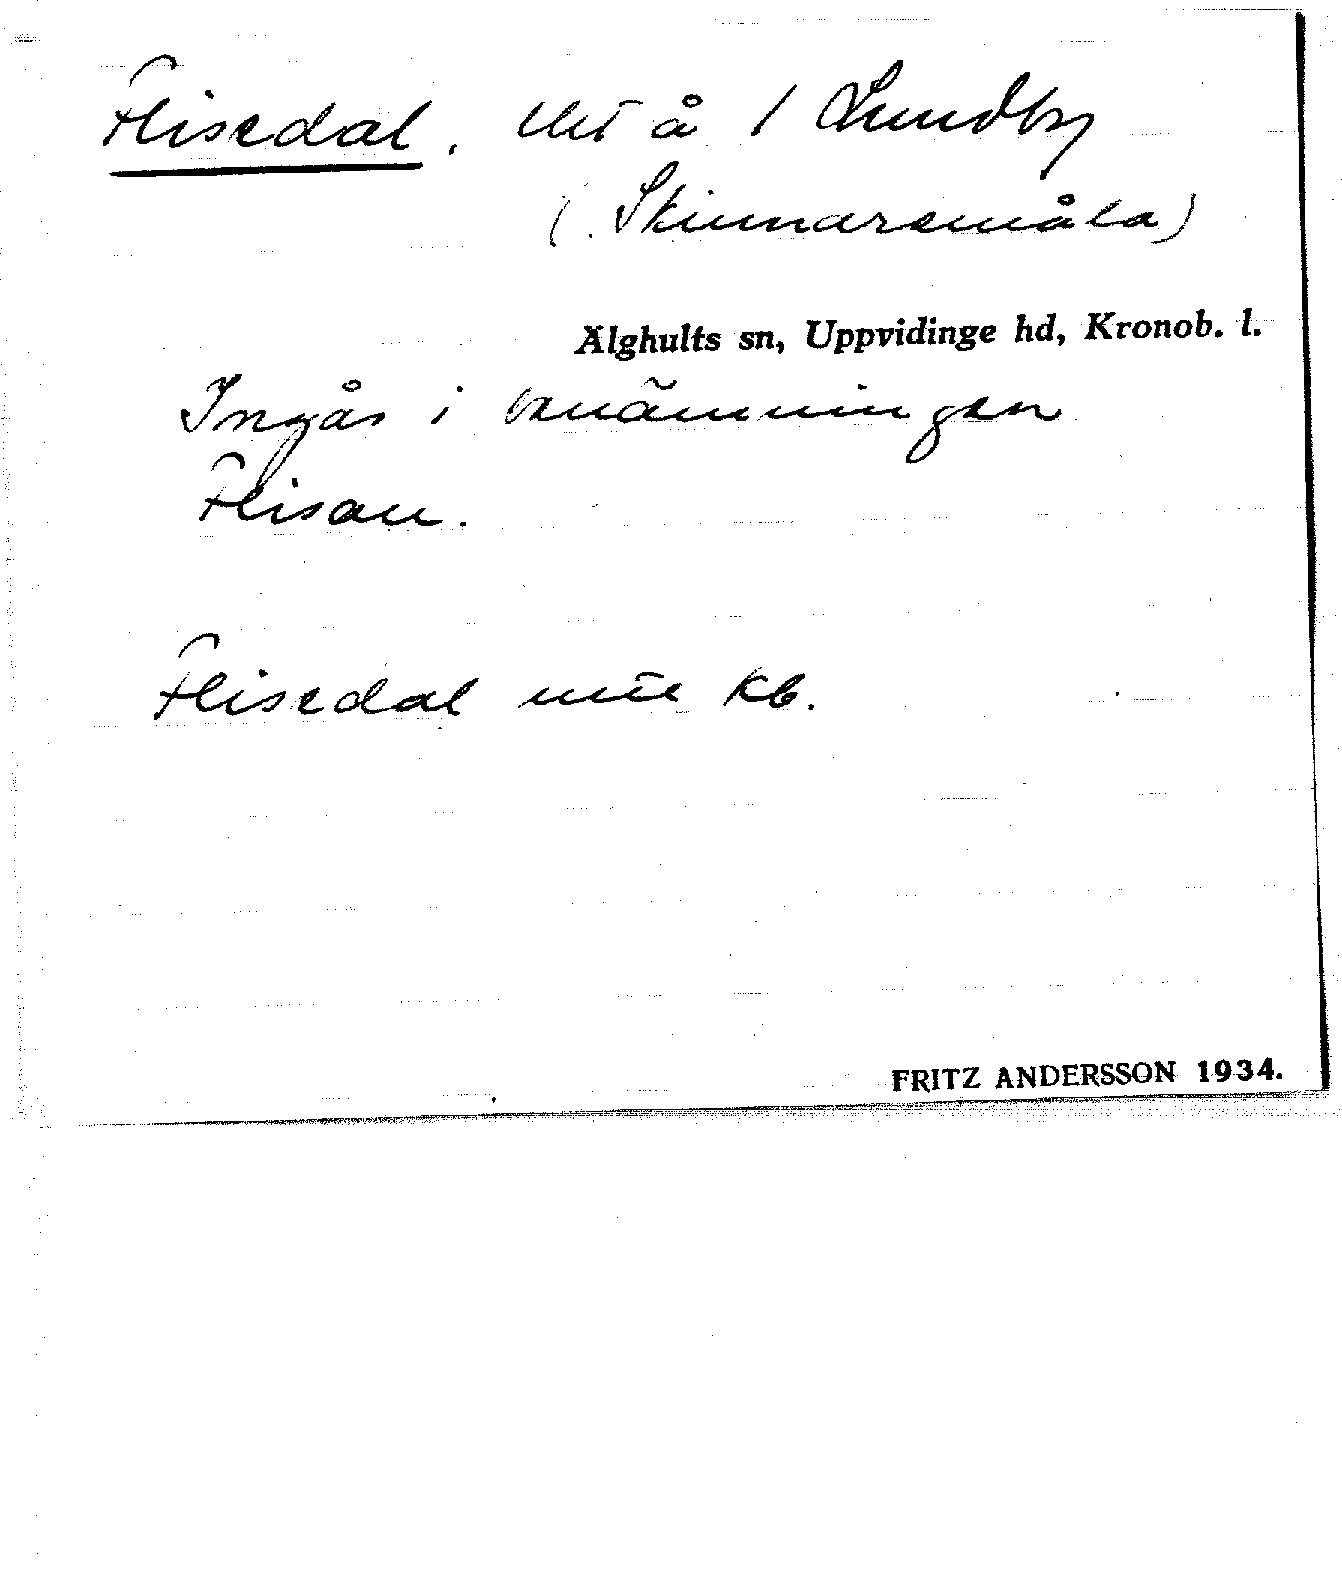 Flisedal. lht å 1 Lundby
(. Skinnaremåla)
Älghults sn, Uppvidinge hd, Kronob. l.
Ingår i benämningen
Flisan.
Flisedal kb.
FRITZ ANDERSSON 1934.